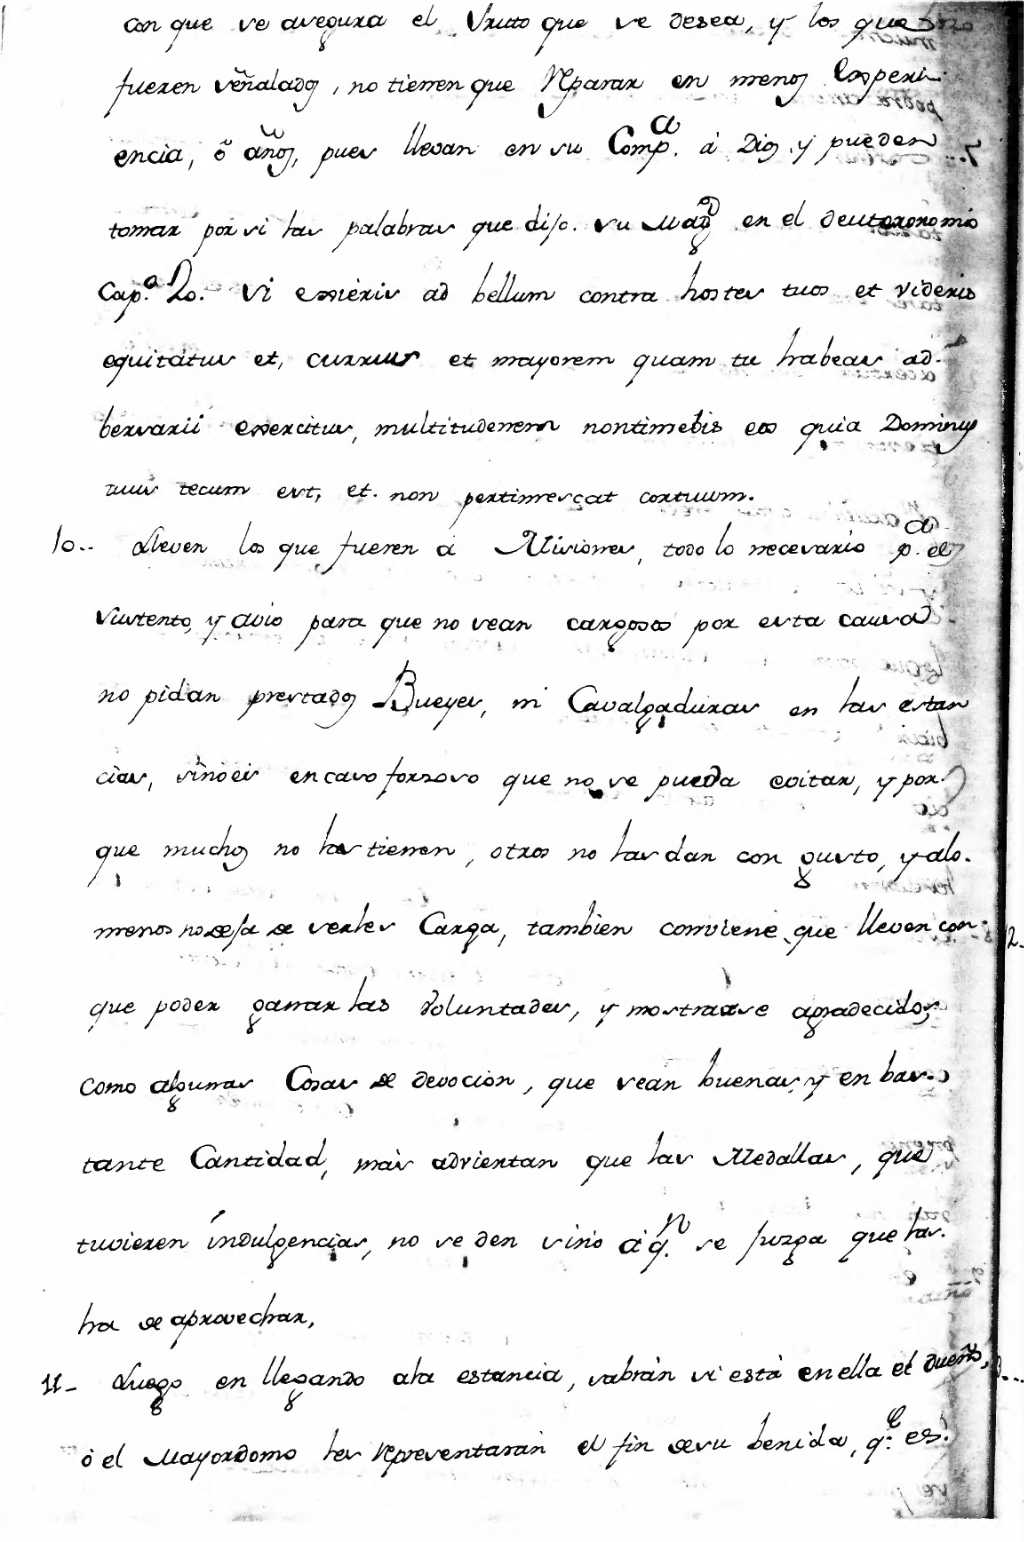 con que se asegura el fruto que se desea, y los que
fueren señalados, no tienen que Reparar en menos Esperi-
encia, ó años, pues llevan en su Comp.a á Dios y pueden
tomar por si las palabras que dijo. su Magd en el deuteronomio
Cap.o 20. Si exsieris ad bellum contra hostes tuos et videris
equitatus et, currus et mayorem quam tu habeas ad-
bersarii exsercitus, multitudenem nontimebis eos quia Dominus
tuus tecum est, et. non pertimescat cortuum.
10.. Lleven los que fueren a Misiones, todo lo necesario p.a el
sustento, y avio para que no sean cargosos por esta causa
no pidan prestados Bueyes, ni Cavalgaduras en las estan
cias, sino es en caso forsoso que no se pueda evitar, y por-
que muchos no las tienen, otros no las dan con gusto, y alo-
menos no deja de serles Carga, tambien conviene que lleven con-
que poder ganar las Voluntades, y mostrarse agradecidos
como algunas Cosas de devocion, que sean buenas, y en bas-
tante Cantidad, mas advientan que las Medallas, que
tuvieren indulgencias, no se den sino á q.n se juzga que las-
ha de aprovechar,
11- Luego en llegando ala estancia, sabrán si está en ella el dueño,
ò el Mayordomo les representarán el fin desu benida, q.e es.